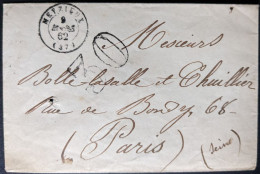 METZ
9
62
Messieurs
Bolle-Lasalle et Thuillier
Rue de Bondy 68-
(Paris)
(Seine)